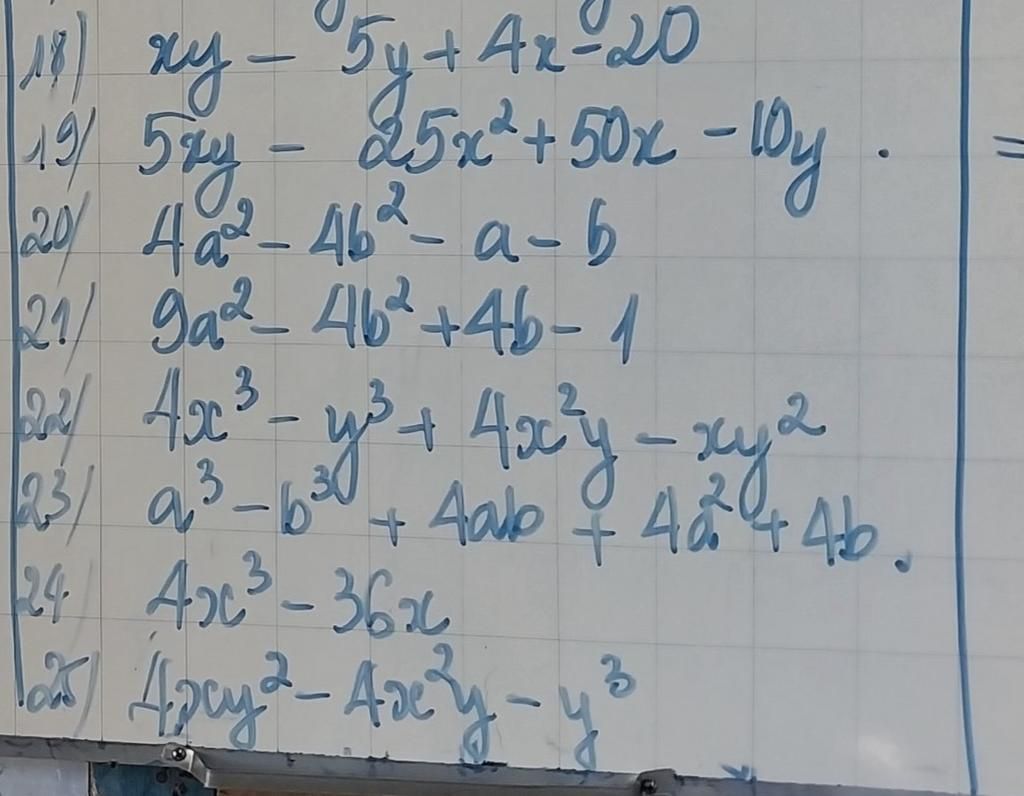 18) xy - 5y + 4x - 20
19) 5xy - 25x² + 50x - 10y .
=
20) 4a² - 4b² - a - b
21) 9a² - 4b² + 4b - 1
22) 4x³ - y³ + 4x²y - xy²
23) a³ - b³ + 4ab + 4a² + 4b.
24) 4x³ - 36x
25) 4xy² - 4x²y - y³